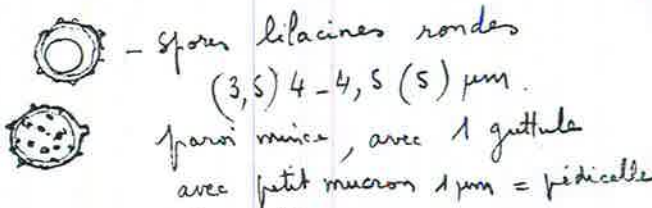 - Spores lilacines rondes
(3,5) 4-4,5 (5) µm.
paroi mince, avec 1 guttule
avec petit mucron 1 µm = pédicelle